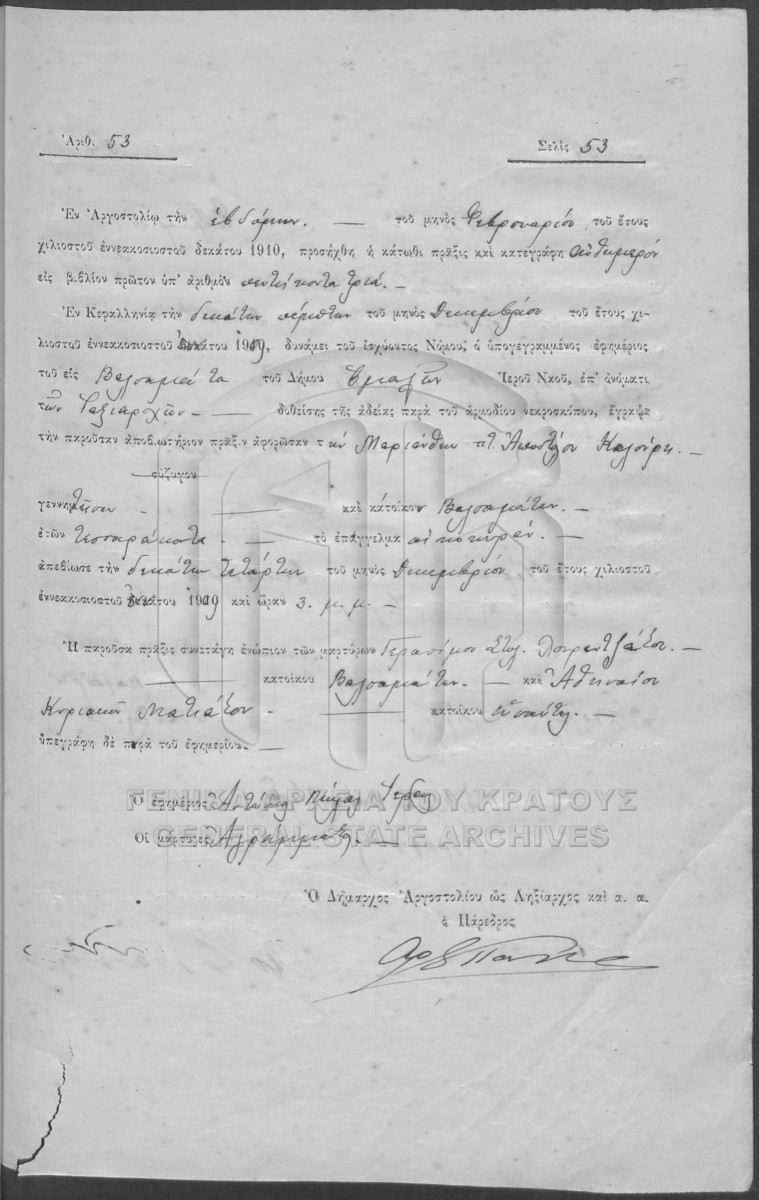 Ἀριθ. 53
Σελὶς 53
Ἐν Ἀργοστολίῳ τὴν ἑβδόμην. — τοῦ μηνὸς Φεβρουαρίου τοῦ ἔτους
χιλιοστοῦ ἐννεακοσιοστοῦ δεκάτου 1910, προσήχθη ἡ κάτωθι πρᾶξις καὶ κατεγράφη αὐθημερόν
εἰς βιβλίον πρῶτον ὑπ' ἀριθμὸν πεντήκοντα τρία. —
Ἐν Κεφαλληνίᾳ τὴν δεκάτην πέμπτην τοῦ μηνὸς Δεκεμβρίου τοῦ ἔτους χι-
λιοστοῦ ἐννεακοσιοστοῦ 1909, δυνάμει τοῦ ἰσχύοντος Νόμου, ὁ ὑπογεγραμμένος ἐφημέριος
τοῦ εἰς Βαλσαμάτα τοῦ Δήμου Ὁμαλῶν Ἱεροῦ Ναοῦ, ἐπ' ὀνόματι
τῶν Ταξιαρχῶν — δοθείσης τῆς ἀδείας παρὰ τοῦ ἁρμοδίου νεκροσκόπου, ἔγραψε
τὴν παροῦσαν ἀποβιωτήριον πρᾶξιν ἀφορῶσαν τὴν Μαριάνθην Ἀποστόλου —
σύζυγον
γεννηθεῖσαν — καὶ κάτοικον Βαλσαμάτων. —
ἐτῶν τεσσαράκοντα — τὸ ἐπάγγελμα οἰκοκυράν. —
ἀπεβίωσε τὴν δεκάτην τετάρτην τοῦ μηνὸς Δεκεμβρίου τοῦ ἔτους χιλιοστοῦ
ἐννεακοσιοστοῦ 1909 καὶ ὥραν 3. μ. μ. —
Ἡ παροῦσα πρᾶξις συνετάγη ἐνώπιον τῶν μαρτύρων Γερασίμου Λορεντζάτου. —
κατοίκου Βαλσαμάτων. — καὶ Ἀθανασίου
Κυριακοῦ — κατοίκου —
ὑπεγράφη δὲ παρὰ τοῦ ἐφημερίου. —
Ὁ ἐφημέριος
Οἱ μάρτυρες Ἀγράμματοι. —
Ὁ Δήμαρχος Ἀργοστολίου ὡς Ληξίαρχος καὶ α. α.
ὁ Πάρεδρος
ΓΕΝΙΚΑ ΑΡΧΕΙΑ ΤΟΥ ΚΡΑΤΟΥΣ
GENERAL STATE ARCHIVES